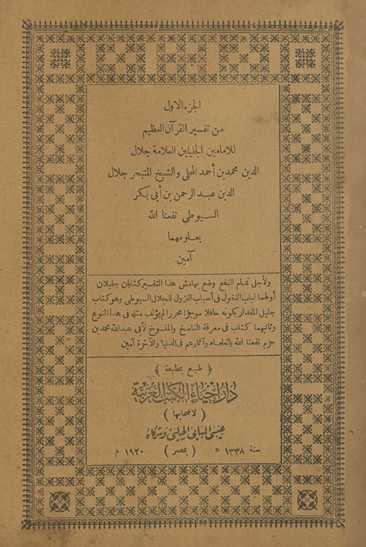 الجزء الاول
من تفسير القرآن العظيم
للامامين الجليلين العلامة جلال
الدين محمد بن أحمد المحلى والشيخ المتبحر جلال
الدين عبد الرحمن بن أبى بكر
السيوطى نفعنا الله
بعلومهما
آمين
ولأجل تمام النفع وضع بهامش هذا التفسير كتابان جليلان
أولهما لباب النقول فى أسباب النزول للجلال السيوطى وهو كتاب
جليل المقدار لكونه حافلا موجزا محررا لم يؤلف مثله فى هذا النوع
وثانيهما كتاب فى معرفة الناسخ والمنسوخ لأبى عبد الله محمد بن
حزم نفعنا الله بالعلماء وآثارهم فى الدنيا والآخرة آمين
﴿ طبع بمطبعة ﴾
دار إحياء الكتب العربية
( لأصحابها )
عيسى البابى الحلبى وشركاه
سنة ١٣٣٨ ه ( بمصر ) ١٩٢٠ م